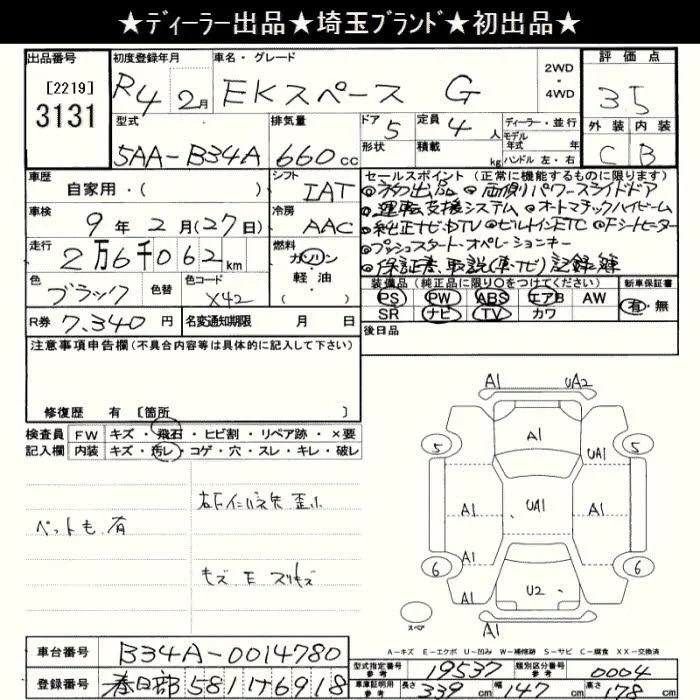 ★ディーラー出品★埼玉ブランド★初出品★
出品番号 初度登録年月 車名・グレード 2WD・4WD 評価点
[2219] 3131 R4 2月 EKスペース G 35
型式 排気量 ドア 5 定員 4人 ディーラー・並行 外装 内装
5AA-B34A 660cc 形状 積載 kg モデル年式 年式 ハンドル 左・右 C B
車歴 自家用・( ) シフト IAT セールスポイント(正常に機能するものに限ります)
◎ネク出品 ◎両側パワースライドドア
車検 9年2月(27日) 冷房 AAC ◎運転支援システム ◎オートマチックハイビーム
◎純正ナビ・DTV ◎ビルトインETC ◎Fシートヒーター
走行 2万6千062km 燃料 ガソリン・軽油・( ) ◎プッシュスタートオペレーションキー
◎保証書、取説(車・ナビ)記録簿
色 ブラック 色替 色コード X42 装備品(純正品に限り○をつけてください) 新車保証書
PS PW ABS エアB AW 有・無
R券 7,340円 名変通知期限 月 日 SR ナビ TV カワ
注意事項申告欄(不具合内容等は具体的に記入して下さい) 後日品
修復歴 有 [箇所 ]
検査員 FW キズ・飛石・ヒビ割・リペア跡・×要
記入欄 内装 キズ・汚レ・コゲ・穴・スレ・キレ・破レ
ペットも有
キズ E スリキズ
A1 UA2
A1
5 5
A1 UA1 A1
A1 A1
6 6
U2
スペア A1
A-キズ E-エクボ U-凹み W-補修跡 S-サビ C-腐食 XX-交換済
車台番号 B34A-0014780 型式指定番号 参考 19537 類別区分番号 参考 0004
登録番号 春日部581 け6918 車庫証明用 参考 長さ 339cm 幅 147cm 高さ 178cm